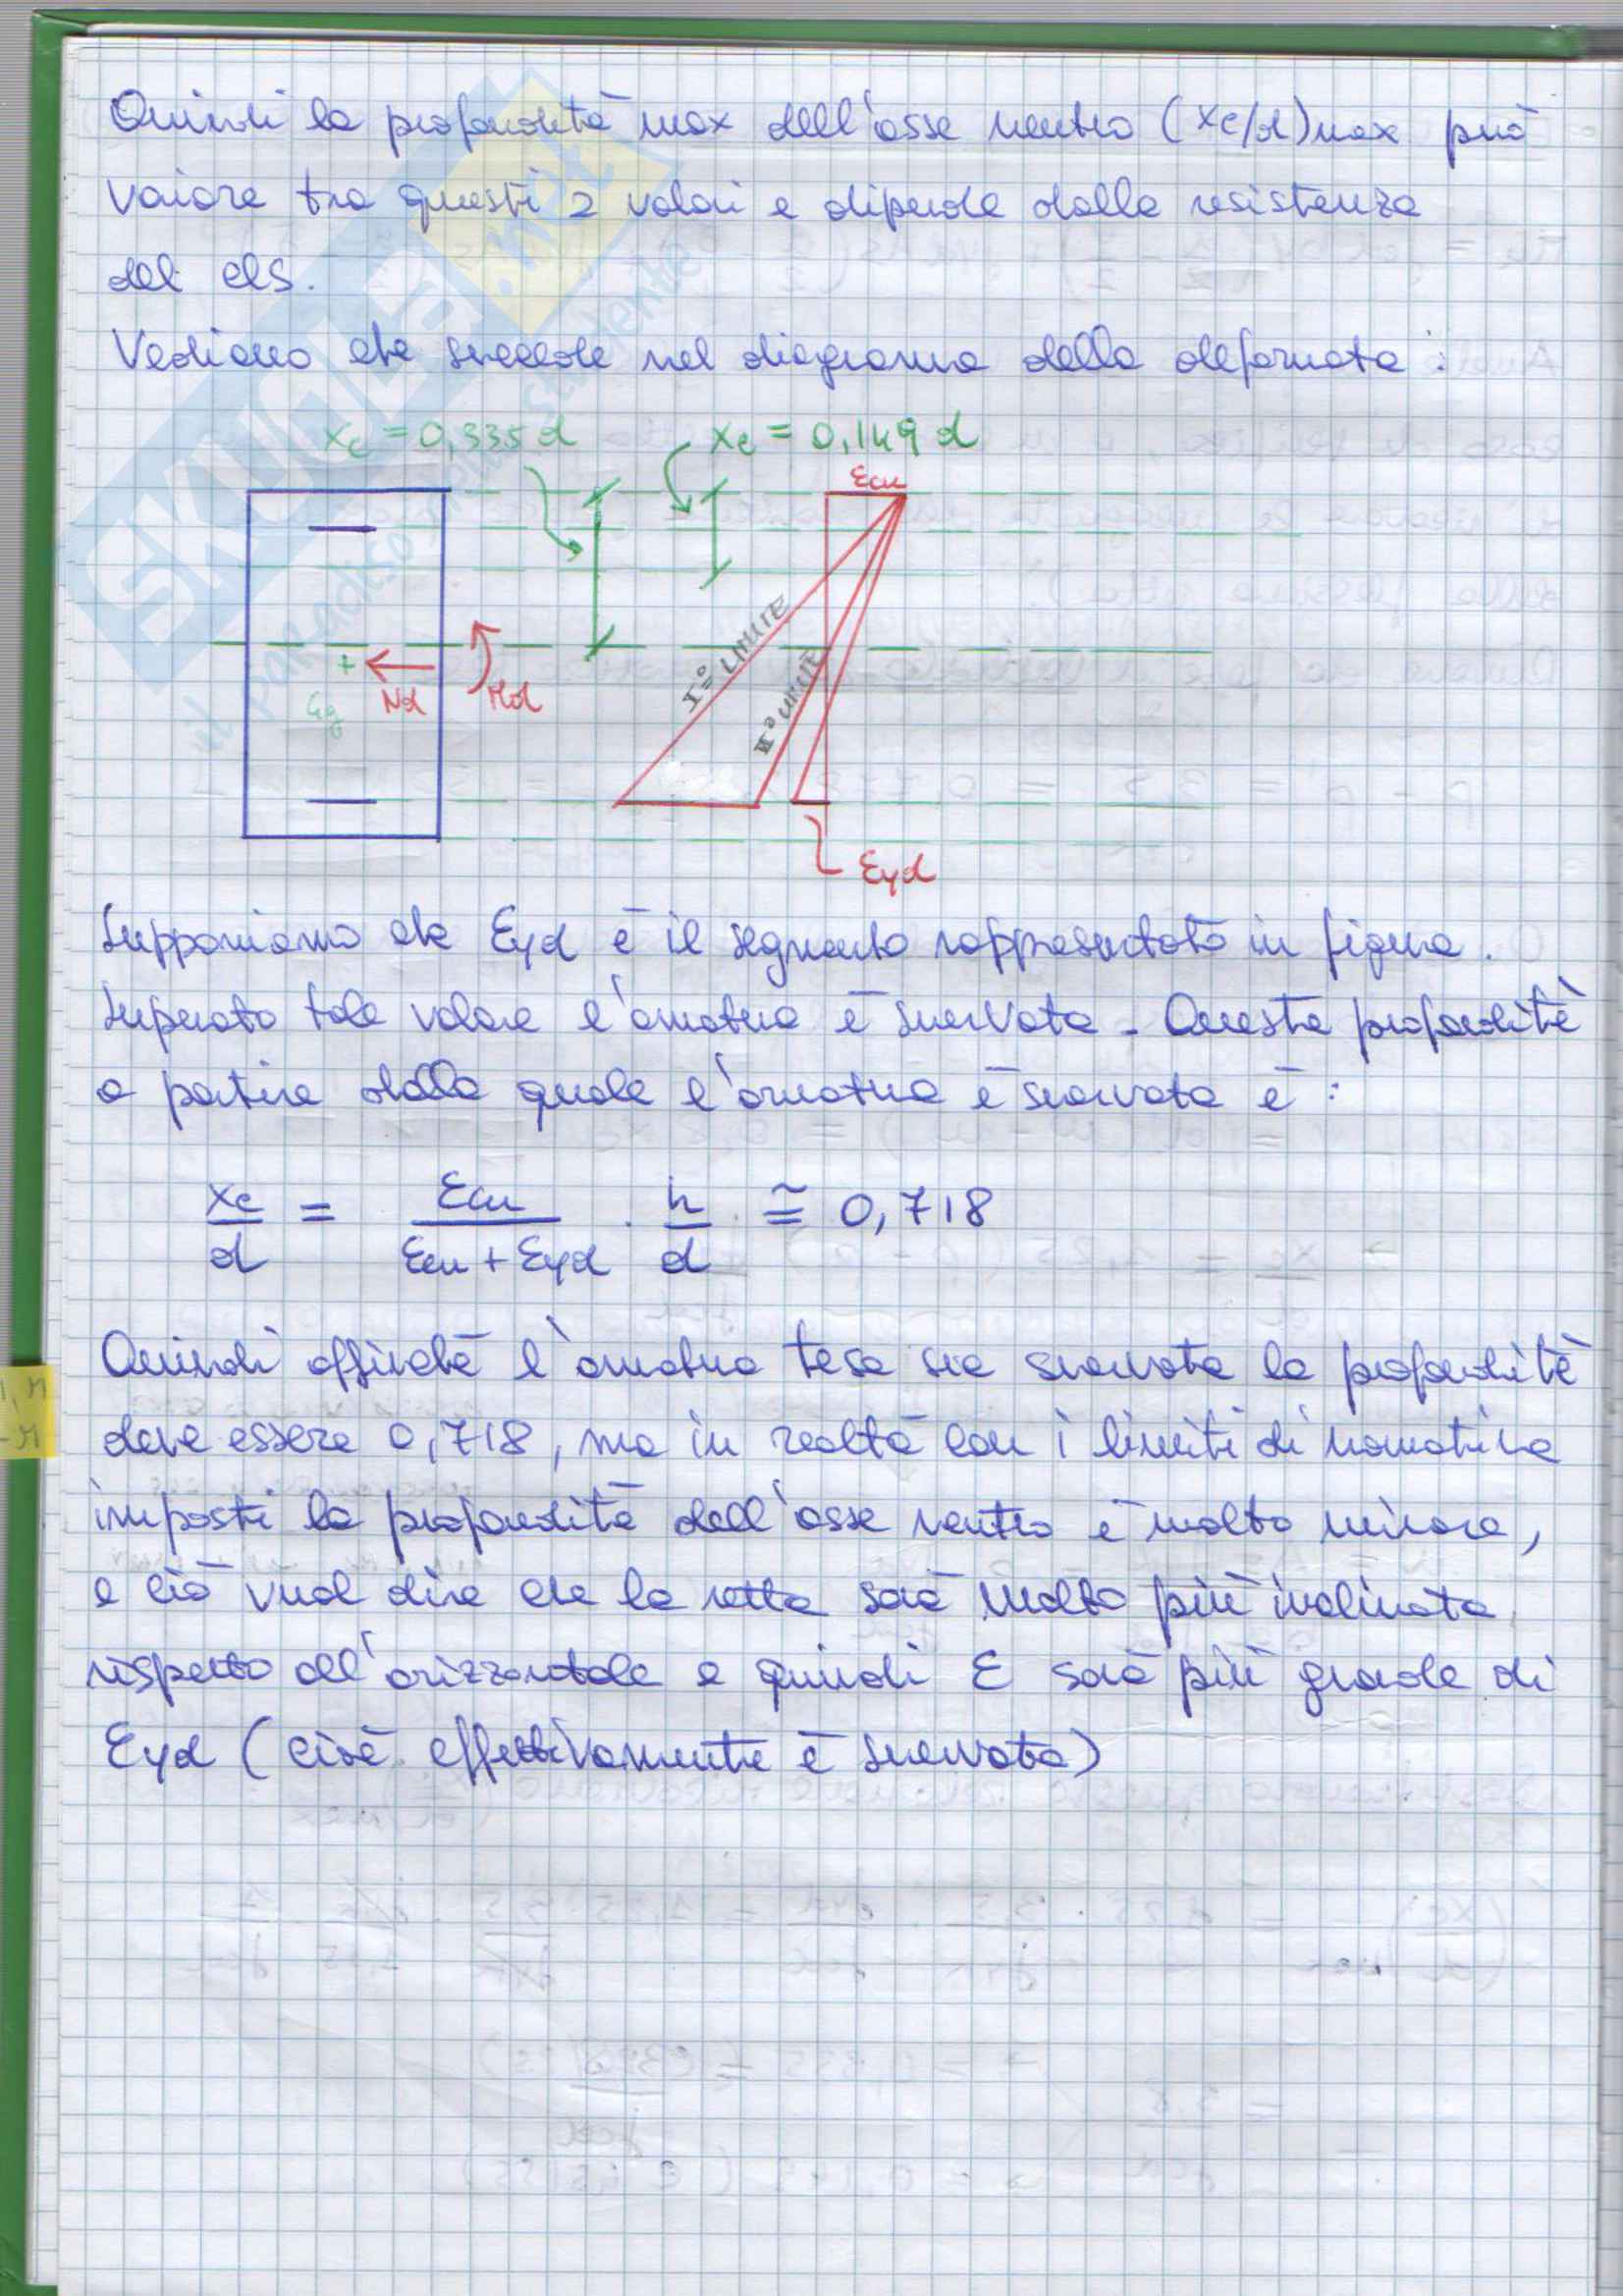 Quindi la profondità max dell'asse neutro (xc/d)max può
variare tra questi 2 valori e dipende dalla resistenza
del cls.
Vediamo che succede nel diagramma della deformata :
xc = 0,335 d
xc = 0,149 d
εcu
I° LIMITE
II° LIMITE
Nd
Md
εyd
Supponiamo che εyd è il segmento rappresentato in figura.
Superato tale valore l'armatura è snervata. Questa profondità
a partire dalla quale l'armatura è snervata è :
xc/d = εcu/(εcu + εyd) · h/d ≅ 0,718
Quindi affinché l'armatura tesa sia snervata la profondità
deve essere 0,718, ma in realtà con i limiti di normativa
imposti la profondità dell'asse neutro è molto minore,
e ciò vuol dire che la retta sarà molto più inclinata
rispetto all'orizzontale e quindi ε sarà più grande di
εyd (cioè effettivamente è snervata)
SKUOLA.net
il paradiso dello studente